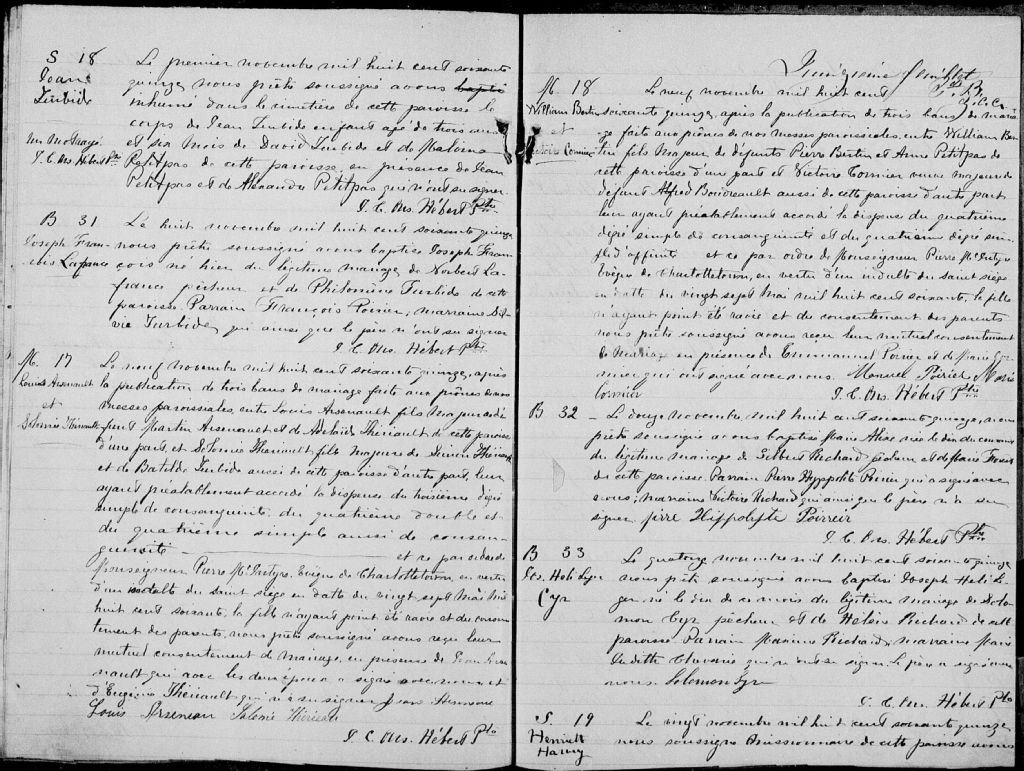 S 18
Jean
Turbide
un naufragé
J. C. Ons. Hébert Ptre
Le premier novembre mil huit cent soixante
quinze nous prêtre soussigné avons bapti
inhumé dans le cimetière de cette paroisse le
corps de Jean Turbide enfant agé de trois ans
et six mois de David Turbide et de Malvina
Petitpas de cette paroisse en présence de Jean
Petitpas et de Alexandre Petitpas qui n'ont su signer.
J. C. Ons. Hébert Ptre
B 31
Joseph Fran-
cois Lafrance
Le huit novembre mil huit cent soixante quinze
nous prêtre soussigné avons baptisé Joseph Fran
çois né hier du légitime mariage de Norbert La-
france pêcheur et de Philomène Turbide de cette
paroisse Parrain François Poirier, marraine
Turbide, qui ainsi que le père n'ont su signer
J. C. Ons. Hébert Ptre
M. 17
Louis Arsenault
et
Salomée Thériault
Le neuf novembre mil huit cent soixante quinze, après
la publication de trois bans de mariage faite aux prônes de nos
messes paroissiales, entre Louis Arsenault fils majeur de dé
funt Martin Arsenault et de Adelaide Thériault de cette paroisse
d'une part, et Salomée Thériault, fille majeure de Thériault
et de Batilde Turbide aussi de cette paroisse d'autre part, leur
ayant préalablement accordé la dispense du troisième degré
simple de consanguinité, du quatrième double et
du quatrième simple aussi de consan-
guinité et ce par ordre de
Monseigneur Pierre McIntyre, Evêque de Charlottetown, en vertu
d'un indulte du Saint Siège en datte du vingt sept Mai mil
huit cent soixante, la fille n'ayant point été ravie et du consen
tement des parents, nous prêtre soussigné avons reçu leur
mutuel consentement de mariage, en présence de Jean Arse
nault qui avec les deux époux a signé avec nous et
d'Eugénie Thériault qui n'a su signer Jean
Louis Arseneau Salomé Thériault
J. C. Ons. Hébert Ptre
J. C. Ons.
M. 18
William Bertin
et
Victoire Cormier
Le neuf novembre mil huit cent
soixante quinze, après la publication de trois bans de maria
ge faite aux prônes de nos messes paroissiales, entre William Ber
tin fils Majeur de défunts Pierre Bertin et Anne Petitpas de
cette paroisse d'un part et Victoire Cormier veuve majeure de
défunt Alfred Boudreault aussi de cette paroisse d'autre part
leur ayant préalablement accordé la dispense du quatrième
degré simple de consanguinité et du quatrième degré sim
ple d'affinité et ce par ordre de Monseigneur Pierre McIntyre
Evêque de Charlottetown, en vertu d'un indulte du Saint siège
en datte du vingt sept Mai mil huit cent soixante, la fille
n'ayant point été ravie et du consentement des parents
nous prêtre soussigné avons reçu leur mutuel consentement
de Mariage en présence de Emmanuel Poirier et de Marie Cor
mier qui ont signé avec nous. Manuel Poirier Marie
Cormier J. C. Ons. Hébert Ptre
B 32
Le douze novembre mil huit cent soixante quinze, nous
prêtre soussigné avons baptisé Marie Alice née le dix du courant
du légitime mariage de Gilbert Richard et de Marie
de cette paroisse. Parrain Pierre Hyppolite Poirier qui a signé avec
nous, marraine Victoire Richard qui ainsi que le père n'a su
signer. pirre Hippolyte Poirreir
J. C. Ons. Hébert Ptre
B 33
Jos. Heli
Cyr
Le quatorze novembre mil huit cent soixante quinze
nous prêtre soussigné avons baptisé Joseph Heli
né le dix de ce mois du légitime mariage de Solo
mon Cyr pêcheur et de Helène Richard de cette
paroisse Parrain Maxime Richard, marraine Marie
Judithe Chavarie qui n'ont su signer. Le père a signé avec
nous. Solomon Cyr
J. C. Ons. Hébert Ptre
S. 19
Henriett
Harvey
Le vingt novembre mil huit cent soixante quinze
nous soussigné Missionnaire de cette paroisse avons